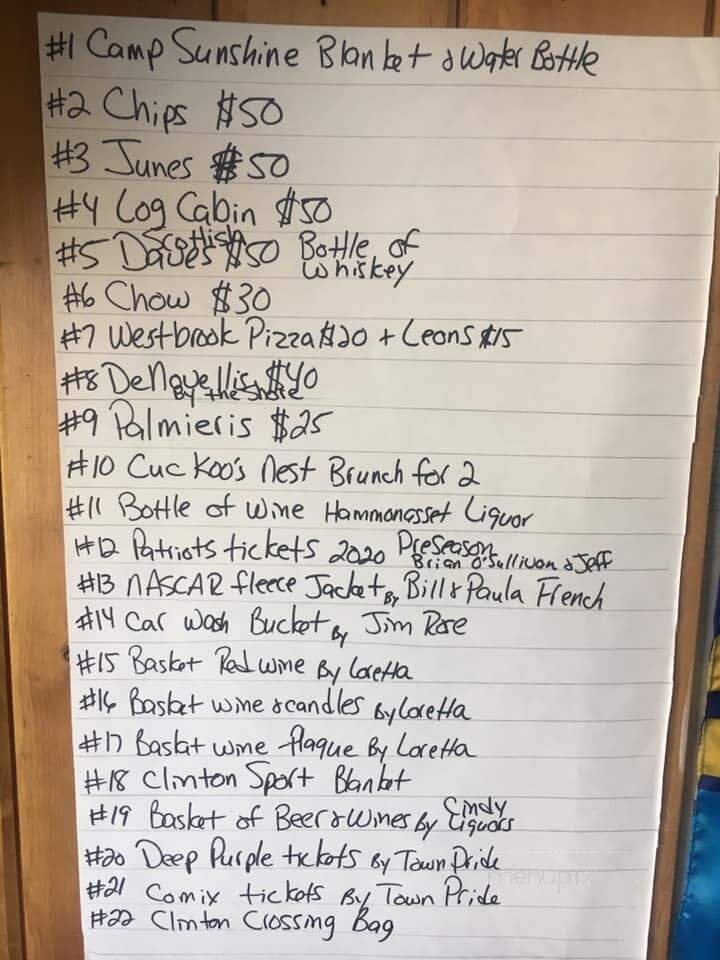 #1 Camp Sunshine Blanket & Water Bottle
#2 Chips $50
#3 Junes $50
#4 Log Cabin $50
#5 Daves Scottish $50 Bottle of
Whiskey
#6 Chow $30
#7 Westbrook Pizza $20 + Leons $15
#8 DeNovellis $40
By the Shore
#9 Palmieris $25
#10 Cuckoo's Nest Brunch for 2
#11 Bottle of Wine Hammonasset Liquor
#12 Patriots tickets 2020 Preseason
Brian O'Sullivan & Jeff
#13 NASCAR fleece Jacket By Bill & Paula French
#14 Car Wash Bucket By Jim Rose
#15 Basket Red wine By Loretta
#16 Basket wine & candles By Loretta
#17 Basket wine plaque By Loretta
#18 Clinton Sport Blanket
#19 Basket of Beer & Wines By Cindy
Liquors
#20 Deep Purple tickets By Town Pride
#21 Comix tickets By Town Pride
#22 Clinton Crossing Bag
menupix